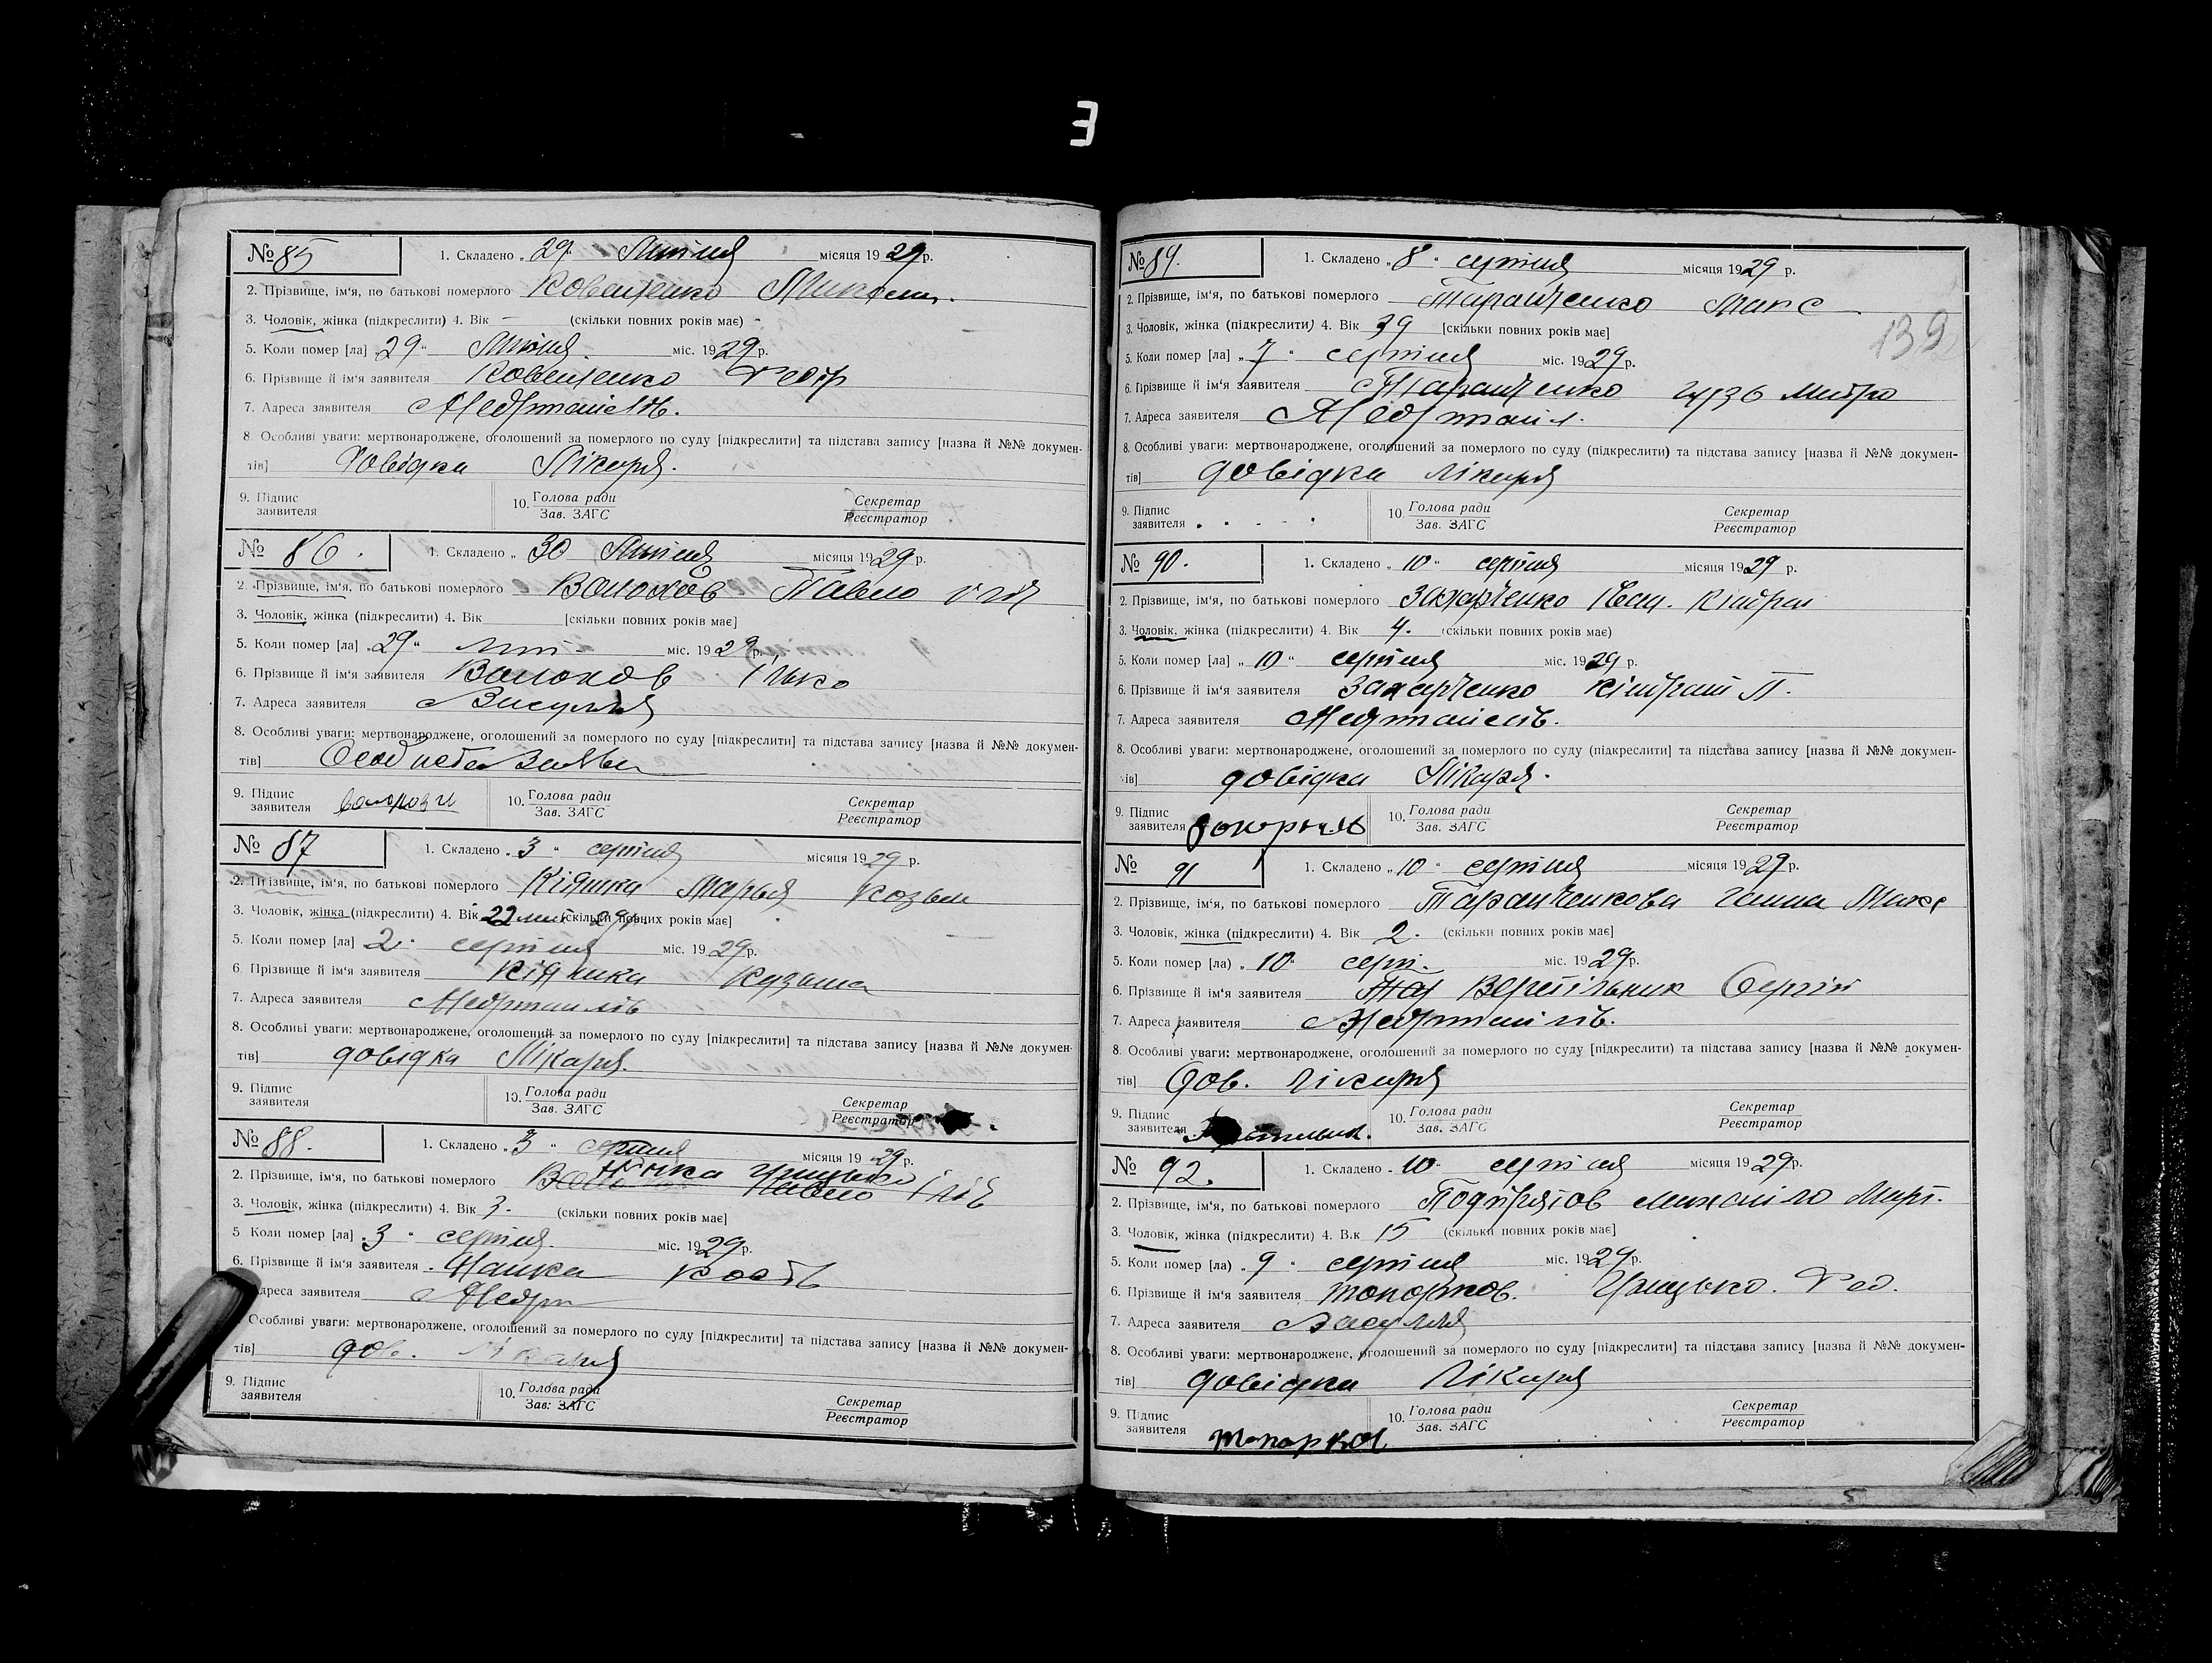 З
№ 85 1. Складено „ 29 " Липня місяця 1929 р.
2. Прізвище, ім'я, по батькові померлого Коваленко Микола.
3. Чоловік, жінка (підкреслити) 4. Вік – (скільки повних років має) –
5. Коли помер [ла] „29" Липня міс. 1929 р.
6. Прізвище й ім'я заявителя Коваленко
7. Адреса заявителя
8. Особливі уваги: мертвонароджене, оголошений за померлого по суду [підкреслити] та підстава запису [назва й №№ докумен-
тів] Довідка Лікаря.
9. Підпис заявителя 10. Голова ради Зав. ЗАГС Секретар Реєстратор
№ 86. 1. Складено „ 30 Липня місяця 1929 р.
2. Прізвище, ім'я, по батькові померлого Волохов Павло
3. Чоловік, жінка (підкреслити) 4. Вік [скільки повних років має]
5. Коли помер [ла] „29" лип міс. 1929 р.
6. Прізвище й ім'я заявителя Волохов Ілько
7. Адреса заявителя
8. Особливі уваги: мертвонароджене, оголошений за померлого по суду [підкреслити] та підстава запису [назва й №№ докумен-
тів] Особиста Заява
9. Підпис заявителя 10. Голова ради Зав. ЗАГС Секретар Реєстратор
№ 87 1. Складено „3" серпня місяця 1929 р.
2. Прізвище, ім'я, по батькові померлого Марья
3. Чоловік, жінка (підкреслити) 4. Вік 22 [скільки повних років має]
5. Коли помер [ла] 2" серпня міс. 1929 р.
6. Прізвище й ім'я заявителя
7. Адреса заявителя
8. Особливі уваги: мертвонароджене, оголошений за померлого по суду [підкреслити] та підстава запису [назва й №№ докумен-
тів] довідка Лікаря.
9. Підпис заявителя 10. Голова ради Зав. ЗАГС Секретар Реєстратор
№ 88. 1. Складено „3" серпня місяця 1929 р.
2. Прізвище, ім'я, по батькові померлого
3. Чоловік, жінка (підкреслити) 4. Вік 3. (скільки повних років має]
5 Коли помер [ла] „3" серпня міс. 1929 р.
6. Прізвище й ім'я заявителя Кость
адреса заявителя
Особливі уваги: мертвонароджене, оголошений за померлого по суду [підкреслити] та підстава запису [назва й №№ докумен-
тів] дов. Лікаря
9. Підпис заявителя 10. Голова ради Зав. ЗАГС Секретар Реєстратор
139
№ 89. 1. Складено „ 8 " серпня місяця 1929 р.
2. Прізвище, ім'я, по батькові померлого Таранченко Макс
3. Чоловік, жінка (підкреслити) 4. Вік 39 [скільки повних років має]
5. Коли помер [ла] „ 7 " серпня міс. 1929 р.
6. Прізвище й ім'я заявителя Таранченко
7. Адреса заявителя
8. Особливі уваги: мертвонароджене, оголошений за померлого по суду (підкреслити) та підстава запису [назва й №№ докумен-
тів] довідка лікаря
9. Підпис заявителя 10. Голова ради Зав. ЗАГС Секретар Реєстратор
№ 90. 1. Складено „ 10 " серпня місяця 1929 р.
2. Прізвище, ім'я, по батькові померлого Захарченко
3. Чоловік, жінка (підкреслити) 4. Вік 4. (скільки повних років має)
5. Коли помер [ла] „ 10 " серпня міс. 1929 р.
6. Прізвище й ім'я заявителя Захарченко Кіндрат П.
7. Адреса заявителя
8. Особливі уваги: мертвонароджене, оголошений за померлого по суду (підкреслити] та підстава запису [назва й №№ докумен-
тів] довідка Лікаря.
9. Підпис заявителя 10. Голова ради Зав. ЗАГС Секретар Реєстратор
№ 91 1. Складено „ 10 " серпня місяця 1929 р.
2. Прізвище, ім'я, по батькові померлого Таранченкова Ганна Макс
3. Чоловік, жінка (підкреслити) 4. Вік 2. (скільки повних років має]
5. Коли помер [ла) „ 10 " серп. міс. 1929 р.
6. Прізвище й ім'я заявителя Сергій
7. Адреса заявителя
8. Особливі уваги: мертвонароджене, оголошений за померлого по суду [підкреслити) та підстава запису [назва й №№ докумен-
тів] Дов. Лікаря
9. Підпис заявителя 10. Голова ради Зав. ЗАГС Секретар Реєстратор
№ 92. 1. Складено „ 10 " серпня місяця 1929 р.
2. Прізвище, ім'я, по батькові померлого Михайло
3. Чоловік, жінка (підкреслити) 4. Вік 15 (скільки повних років має]
5. Коли помер [ла) „ 9 " серпня міс. 1929 р.
6. Прізвище й ім'я заявителя Топорков. Грицько. Фед.
7. Адреса заявителя
8. Особливі уваги: мертвонароджене, оголошений за померлого по суду [підкреслити] та підстава запису [назва й №№ докумен-
тів] довідка Лікаря
9. Підпис заявителя Топорков 10. Голова ради Зав. ЗАГС Секретар Реєстратор